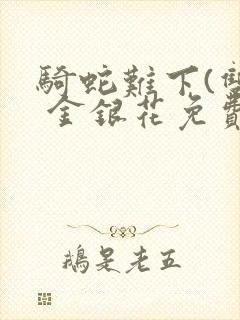 騎蛇難下(雙
金銀花免費
鵝是老五